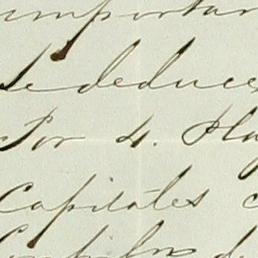 importan
se deduce
Por 4. Play
Capitales c